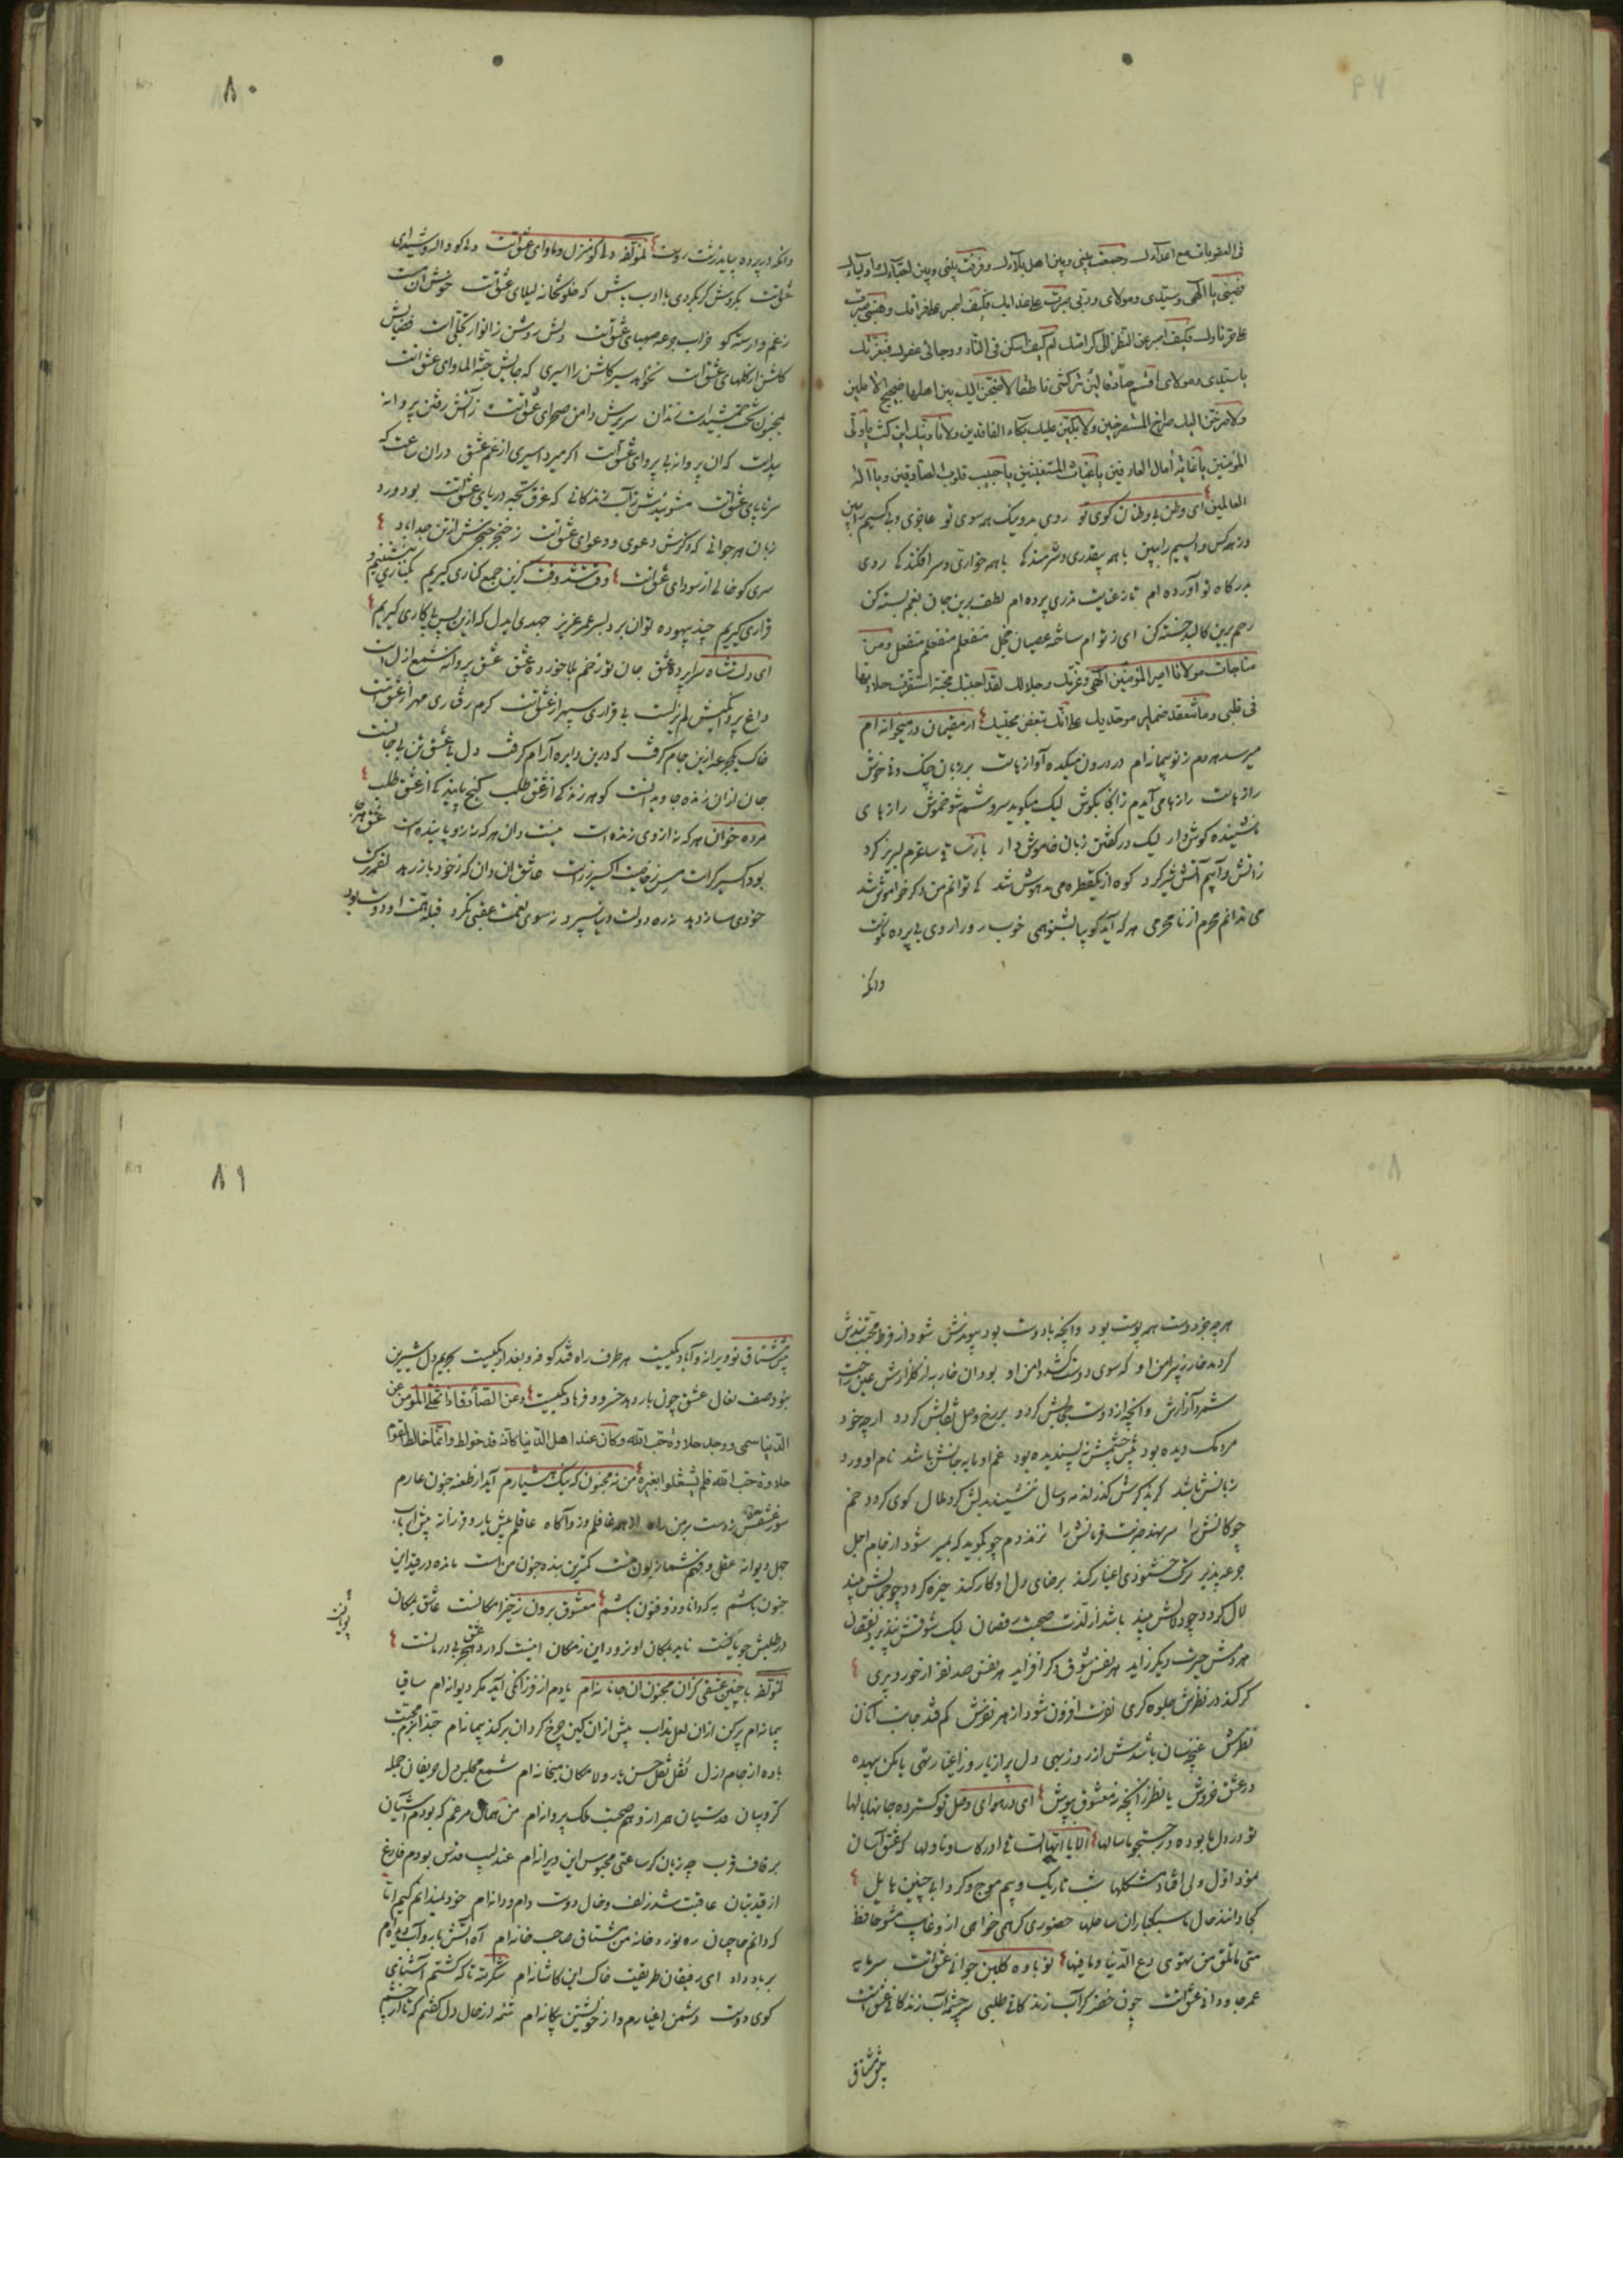 فی العقوبات مع اعدآئك وجمعت بینی وبین اهل بلآئك وفرقت بینی وبین احبّآئك واولیآئك
فهبنی یا الهی وسیّدی ومولای وربّی صبرت علی عذابك فکیف اصبر علی فراقك وهبنی صبرت
علی حرّ نارك فکیف اصبر عن النظر الی کرامتك ام کیف اسکن فی النّار ورجائی عفوك فبعزّتك
یا سیّدی ومولای اقسم صادقا لئن ترکتنی ناطقا لاضجّنّ الیك بین اهلها ضجیج الآملین
ولاصرخنّ الیك صراخ المستصرخین ولابکینّ علیك بکاء الفاقدین ولانادینّك این کنت یا ولیّ
المؤمنین یا غایة آمال العارفین یا غیاث المستغیثین یا حبیب قلوب الصّادقین ویا اله
العالمین ای وطن بی وطنان کوی تو روی بد و نیک همه سوی تو عاجزی و بیکسیم را ببین
ورنه کس و اپسیم را ببین با همه بیقدری و شرمندکی با همه خواری و سرافکندکی روی
بدرکاه تو آورده ام تا ز عنایت نذری پرده ام لطف برین جان بغم بسته کن
رحم برین کالبد خسته کن ای ز تو ام ساخته عصیان خجل منفعلم منفعلم منفعل ومن
مناجات مولانا امیر المؤمنین الهی وعزّتك وجلالك لقد احببتك محبّة استقرّت حلاوتها
فی قلبی وما تنعقد ضمایر موحّدیك علی انّك تبغض محبّیك از مقیمان در میخانه ام
میرسد هر دم ز تو پیمانه ام در درون میکده آوازهاست بر زبان چنک و نی خوش
رازهاست رازها می آیدم زانجا بکوش لیک میکوید سروشم شو خموش رازهای
نشینده کوش دار لیک در کفتن زبان خاموش دار بازم ساقی ساغرم لبریز کرد
زاتش و آبیم آتش تیز کرد کوه از یکقطره می بیهوش شد کی توانم من دکر خاموش شد
می ندانم محرم از نامحرمی هر که آید کو بیا بشنو همی خوب رو را روی بی پرده نکوست
وانکه
٨٠
وانکه در پرده بباید زشت روست لمؤلفه دلی کو منزل و ماوای عشقست دلی کو واله و شیدای
عشقست بکردش کر بکردی با ادب باش که خلوتخانه لیلای عشقست خوش آن مست
ز غم وارسته کو خراب جرعه صهبای عشقست دلش روشن ز انوار تجلّی است فضایش
کلشن از کلهای عشقست نخواهد سیر کلشن را اسیری که جایش جنّة الماوای عشقست
بمجنون تخت جمشید است زندان سریرش دامن صحرای عشقست ز آتش رفتن پروانه
پیداست که آن پروانه بی پروای عشقست اکر میرد اسیری از غم عشق در آن ساعت که
سر تا پای عشقست مشوییدش ز آب زندکانی که غرق لجّه دریای عشقست بود ورد
زبان هر جوانی که ذکرش دعوی و دعوای عشقست ز خنجر حنجرش از تن جدا باد
سری کو خالی از سودای عشقست وقتست وقت کزین جمع کناری کیریم بکناری بنشینیم و
قراری کیریم چند بیهوده توان برد بسر عمر عزیز جهدی ایدل که ازین پس پی کاری کیریم
ای دلت شاه سراپرده عشق جان تو زخم بلا خورده عشق عشق پروانه شمع ازل است
داغ پروانکیش لم یزلست بی قراری سپهر از عشقست کرم رفتاری مهر از عشقست
خاک یکجرعه ازین جام کرفت که درین دایره آرام کرفت دل بی عشق تن بی جانست
جان ازان زنده جاویدانست کوهر زندکی از عشق طلب کنج پایندکی از عشق طلب
مرده خوان هر که نه از وی زنده است نیست دان هر که نه زو پاینده است عشق هر جا
بود اکسیر کرست مس ز خاصیّت اکسیر زرست عاشق آن دان که ز خود باز رهد
خودی ساز دهد نه ره دولت دنیا سپرد نه سوی نعمت عقبی نکرد قبله همّت او دوست بود
هر چه جز دوست همه پوست بود وانچه با دوست بود پیوندش شود از فرط محبّت بندش
کر دمد خار ز پیرامن او که سوی دوست کشد دامن او بود آن خار به از کلزارش عین راحت
شمرد آزارش وانچه از دوست حجابش کردد بر رخ وصل نقابش کردد ار چه خود
مردمک دیده بود پیش چشمش نه پسندیده بود غم او مایه جانش باشد نام او ورد
زبانش باشد کر بذکرش کذرد مه و سال ننشیند بدلش کرد ملال کوی کردد خم
چوکانش را سر نهد ضربت فرمانش را نزند دم چو بکوید که بمیر شود از جام اجل
جرعه پذیر ترک خشنودی اغیار کند برضای دل او کار کند خیره کردد چو جمالش بیند
لال کردد چو دلالش بیند باشد از لذّت صحبت رقصان لیک شوقش نپذیرد نقصان
هر دمش حیرت دیکر زاید هر نفس شوق دکر افزاید هر نفس صد نفر از خود دیری
کر کند در نظرش جلوه کری نوبت افزون شود از هر نوبتش کم فتد جانب آنان
نظرش غنچه سان باشدش از روز بهی دل پر از یار و ز اغیار تهی یا مکن بیهده
در عشق خروش یا نظر زانچه نه معشوق بپوش ای در هوای وصل تو کسترده جانها بالها
تو در دل ما بوده و در جستجو ما سالها الا یا ایها الساقی ادر کاسا وناولها که عشق آسان
نمود اوّل ولی افتاد مشکلها شب تاریک و بیم موج و کردابی چنین هایل
کجا دانند حال ما سبکباران ساحلها حضوری کر همی خواهی ازو غایب مشو حافظ
متی ما تلق من تهوی دع الدّنیا وما فیها نوباوه کلبن جوانی عشقست سرمایه
عمر جاودانی عشقست چون خضر کر آب زندکانی طلبی سرچشمه آب زندکانی عشقست
پیش مشتاق
٨١
پیش مشتاق تو ویرانه و آباد یکیست هر طرف راه فتد کوفه و بغداد یکیست بحریم دل شیرین
نبود صف نعال عشق چون بار دهد خسرو و فرهاد یکیست وعن الصّادق اذا تخلّی المؤمن عن
الدّنیا سمی ووجد حلاوة حبّ الله وکان عند اهل الدّنیا کانّه قد خولط وانّما خالط القوم
حلاوة حبّ الله فلم یشتغلوا بغیره من نه مجنون که نیک هشیارم آید از طعنه جنون عارم
عشقش زدست بر من راه از همه غافلم وزو آکاه عاقلم پیش یار و فرزانه پیش ارباب
جهل دیوانه عقلی و فهم شما زبون منست کمترین بنده جنون منست مانده در قید این
جنون باشم به که دانا و ذو فنون باشم معشوق برون ز حیّز امکانست عاشق بمکان
در طلبش جویانست ناید بمکان او نرود این ز مکان اینست که درد عشق بیدرمانست
پویانست
لمؤلفه با چنین عشقی کزان مجنون آن جانانه ام یادم از فرزانکی آید مکر دیوانه ام ساقیا
پیمانه ام پر کن ازان لعل مذاب پیش ازان کین چرخ کردان پر کند پیمانه ام حبّذا بزم محبّت
باده از جام ازل نقل نقل حسن یار و لامکان میخانه ام شمع مجلس دل حریفان جمله
کرّوبیان قدسیان همراز و هم صحبت ملک پروانه ام من همان مرغم که بودم آشیان
بر قاف قرب چه زیان کر ساعتی محبوس این ویرانه ام عندلیب قدس بودم فارغ
از قید بتان عاقبت شد زلف و خال دوست دام و دانه ام خود نمیدانم کیم امّا
که دانم حاجیان ره نورد خانه من مشتاق صاحب خانه ام آه آتش بار و آب دیده ام
بر باد داد ای رفیقان طریقت خاک این کاشانه ام شکر لله تا که کشتم آشنای
کوی دوست دشمن اغیارم و از خویشتن بیکانه ام شمّه از حال دل کفتم که تا ارباب